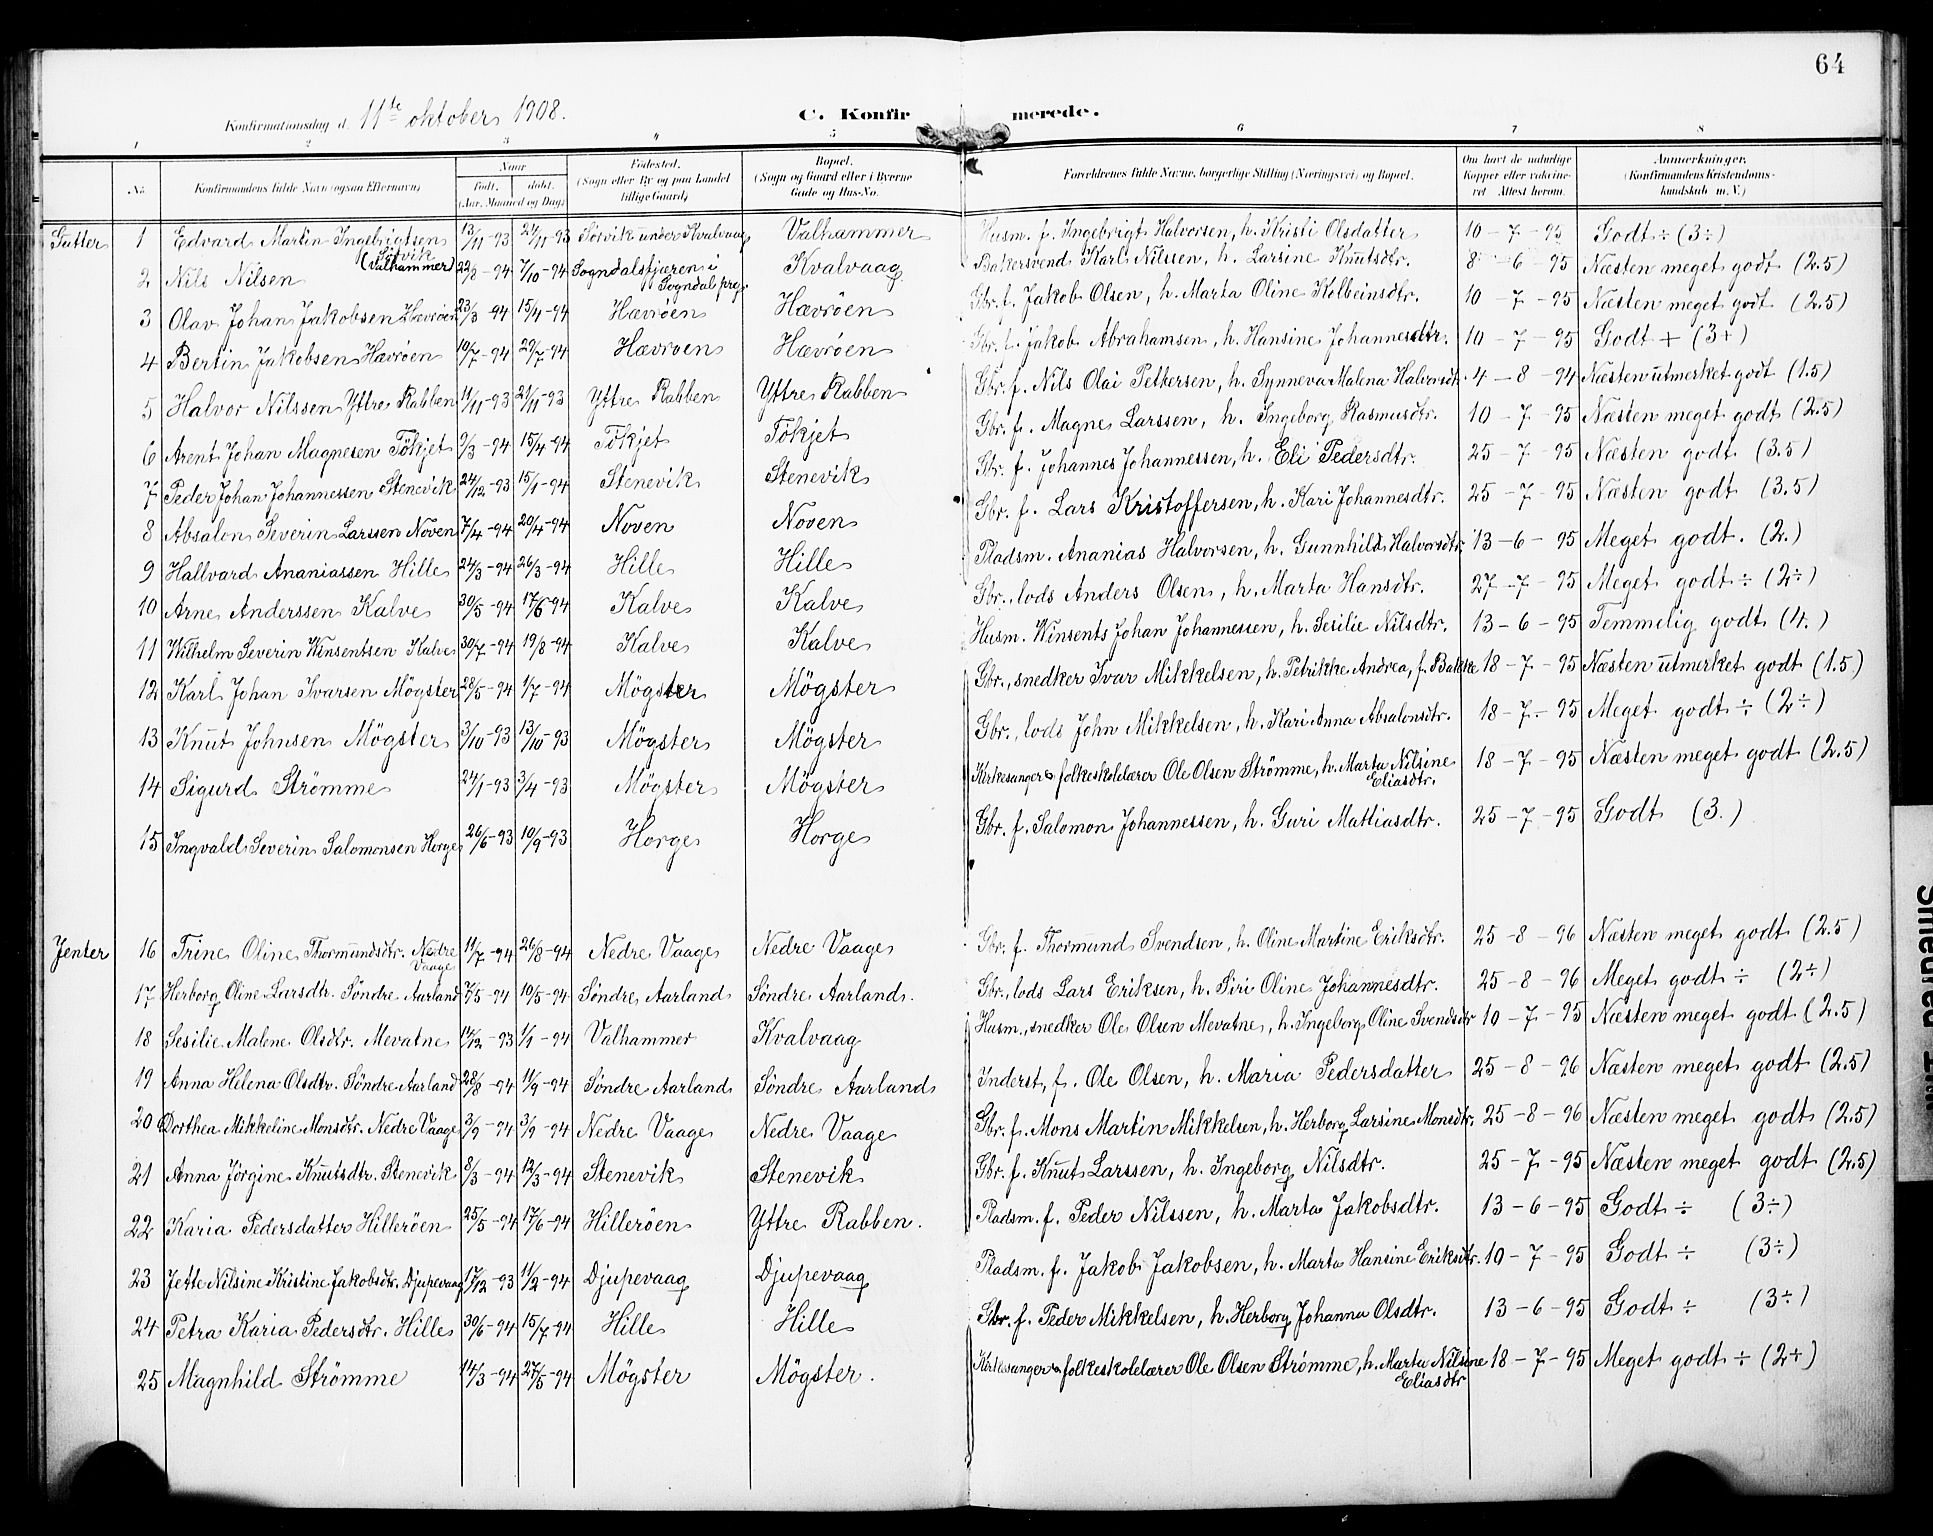 64
Konfirmationsdag d. 11te oktober 1908.
C. Konfirmerede.
1 2 3 4 5 6 7 8
No. Konfirmandens fulde Navn (ogsaa Efternavn) Naar født. døbt. (Aar, Maaned og Dag) Fødested. (Sogn eller By og paa Landet tillige Gaard) Bopæl. (Sogn og Gaard eller i Byerne Gade og Hus-No. Forældrenes fulde Navne, borgerlige Stilling (Næringsvei) og Bopæl. Om havt de naturlige Kopper eller vaccineret. Attest herom. Anmerkninger. (Konfirmandens Kristendomskundskab m. V.)
Gutter 1 Edvard Martin Ingebrigtsen Sörvik (Valhammer) 13/11-93 24/11-93 Sörvik under Kvalvaag Valhammer Husm. f. Ingebrigt Halvorsen, h. Kristi Olsdatter 10-7-95 Godt ÷ (3÷)
2 Nils Nilsen 22/8-94 7/10-94 Sogndalsfjæren i Sogndal prg. Kvalvaag Bakersvend Karl Nilssen, h. Larsine Knutsdtr. 8-6-95 Næsten meget godt (2.5)
3 Olav Johan Jakobsen Hævröen 23/3-94 15/4-94 Hævröen Hævröen Gbr. f. Jakob Olsen, h. Marta Oline Kolbeinsdtr. 10-7-95 Næsten meget godt (2.5)
4 Bertin Jakobsen Hævröen 10/7-94 29/7-94 Hævröen Hævröen Gbr. f. Jakob Abrahamsen, h. Hansine Johannesdtr. 10-7-95 Godt + (3+)
5 Halvor Nilssen Yttre Rabben 11/11-93 21/11-93 Yttre Rabben Yttre Rabben Gbr. f. Nils Olai Pettersen, h. Synneva Malena Halvorsdt. 4-8-94 Næsten utmerket godt (1.5)
6 Arent Johan Magnesen Tökjet 9/3-94 15/4-94 Tökjet Tökjet Gbr. f. Magne Larssen, h. Ingeborg Rasmusdtr. 10-7-95 Næsten meget godt (2.5)
7 Peder Johan Johannessen Stenevik 24/12-93 15/1-94 Stenevik Stenevik Gbr. f. Johannes Johannessen, h. Eli Pedersdtr. 25-7-95 Næsten godt (3.5)
8 Absalon Severin Larssen Noven 7/4-94 20/4-94 Noven Noven Gbr. f. Lars Kristoffersen, h. Kari Johannesdtr. 25-7-95 Næsten godt (3.5)
9 Hallvard Ananiassen Hille 24/3-94 26/3-94 Hille Hille Pladsm. Ananias Halvorsen, h. Gunnhild Halvorsdtr. 13-6-95 Meget godt. (2.)
10 Arne Anderssen Kalve 30/5-94 17/6-94 Kalve Kalve Gbr., lods Anders Olsen, h. Marta Hansdtr. 27-7-95 Meget godt ÷ (2÷)
11 Wilhelm Severin Winsentsen Kalve 30/7-94 19/8-94 Kalve Kalve Husm. Winsents Johan Johannessen, h. Sesilie Nilsdtr. 13-6-95 Temmelig godt (4.)
12 Karl Johan Ivarsen Mögster 28/5-94 1/7-94 Mögster Mögster Gbr., snedker Ivar Mikkelsen, h. Petrikke Andrea, f. Bakke 18-7-95 Næsten utmerket godt (1.5)
13 Knut Johnsen Mögster 3/10-93 13/10-93 Mögster Mögster Gbr., lods John Mikkelsen, h. Kari Anna Absalonsdtr. 18-7-95 Meget godt ÷ (2÷)
14 Sigurd Strömme 24/1-93 3/4-93 Mögster Mögster Kirkesanger & folkeskolelærer Ole Olsen Strömme, h. Marta Nilsine Eliasdtr. 18-7-95 Næsten meget godt (2.5)
15 Ingvald Severin Salomonsen Horge 26/6-93 10/9-93 Horge Horge Gbr. f. Salomon Johannessen, h. Guri Mattiasdtr. 25-7-95 Godt (3.)
Jenter 16 Trine Oline Thormundsdtr. Nedre Vaage 11/7-94 26/8-94 Nedre Vaage Nedre Vaage Gbr. f. Thormund Svendsen, h. Oline Martine Eriksdtr. 25-8-96 Næsten meget godt (2.5)
17 Herborg Oline Larsdtr. Söndre Aarland 7/5-94 10/5-94 Söndre Aarland Söndre Aarland. Gbr., lods Lars Eriksen, h. Siri Oline Johannesdtr. 25-8-96 Meget godt ÷ (2÷)
18 Sesilie Malene Olsdtr. Mevatne 14/12-93 1/1-94 Valhammer Kvalvaag Husm., snedker Ole Olsen Mevatne, h. Ingeborg Oline Svendsdtr 10-7-95 Næsten meget godt (2.5)
19 Anna Helena Olsdtr. Söndre Aarland 28/8-94 11/9-94 Söndre Aarland Söndre Aarland Inderst, f. Ole Olsen, h. Maria Pedersdatter 25-8-96 Næsten meget godt (2.5)
20 Dorthea Mikkeline Monsdtr. Nedre Vaage 3/9-94 3/9-94 Nedre Vaage Nedre Vaage Gbr. f. Mons Martin Mikkelsen, h. Herborg Larsine Monsdtr. 25-8-96 Næsten meget godt (2.5)
21 Anna Jörgine Knutsdtr. Stenevik 8/3-94 12/3-94 Stenevik Stenevik Gbr. f. Knut Larssen, h. Ingeborg Nilsdtr. 25-7-95 Næsten meget godt (2.5)
22 Karia Pedersdatter Hilleröen 25/5-94 17/6-94 Hilleröen Yttre Rabben. Pladsm. f. Peder Nilssen, h. Marta Jakobsdtr. 13-6-95 Godt ÷ (3÷)
23 Jette Nilsine Kristine Jakobsdtr. Djupevaag 17/12-93 11/2-94 Djupevaag Djupevaag Pladsm. f. Jakob Jakobsen, h. Marta Hansine Eriksdtr. 10-7-95 Godt ÷ (3÷)
24 Petra Karia Pedersdtr. Hille 30/6-94 15/7-94 Hille Hille Gbr. f. Peder Mikkelsen, h. Herborg Johanna Olsdtr. 13-6-95 Godt ÷ (3÷)
25 Magnhild Strömme 14/3-94 27/5-94 Mögster Mögster. Kirkesanger & folkeskolelærer Ole Olsen Strömme, h. Marta Nilsine Eliasdtr 18-7-95 Meget godt ÷ (2+)